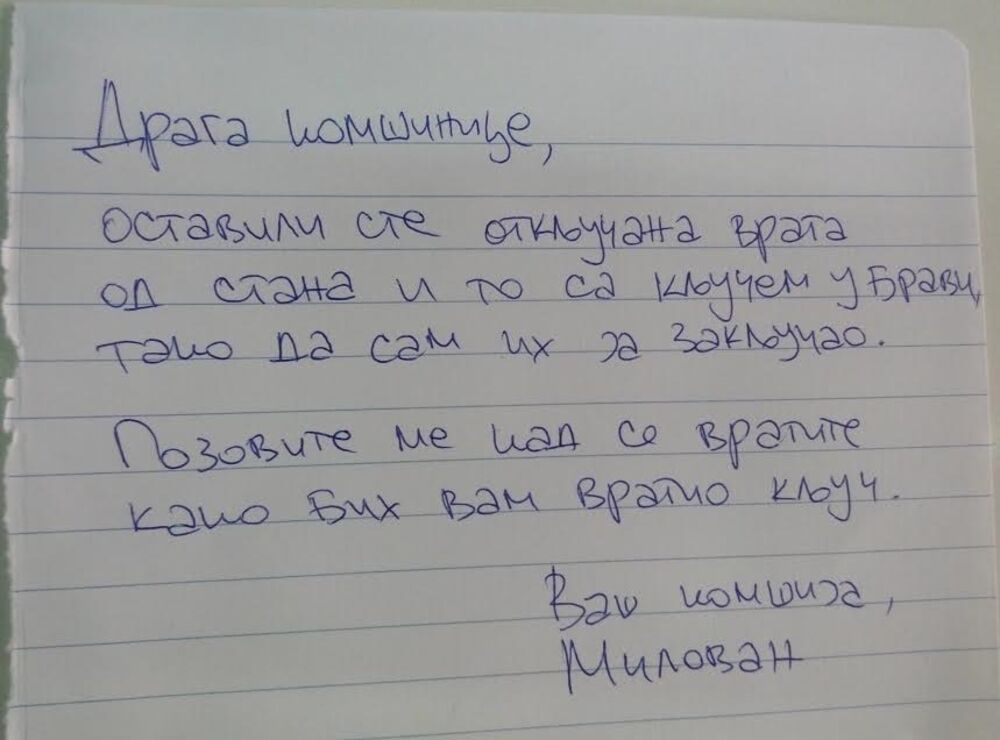 Драга комшинице,
оставили сте откључана врата
од стана и то са кључем у брави,
тако да сам их ја закључао.
Позовите ме кад се вратите
како бих вам вратио кључ.
Ваш комшија,
Милован